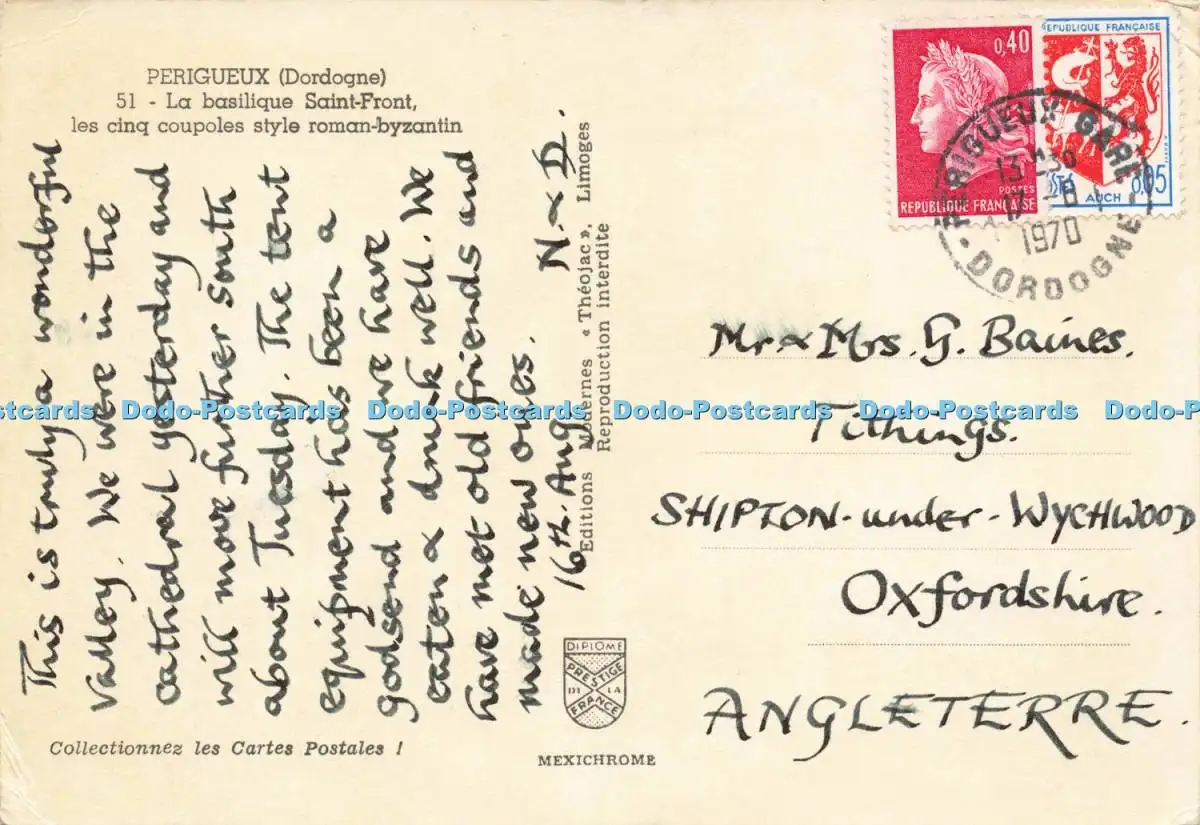 PERIGUEUX (Dordogne)
51 - La basilique Saint-Front,
les cinq coupoles style roman-byzantin
This is truly a wonderful
valley. We were in the
cathedral yesterday and
will move further south
about Tuesday. The tent
equipment has been a
godsend and we have
eaten & drunk well. We
have met old friends and
made new ones.
16th. Aug. N. & D.
Editions Modernes « Théojac », Limoges
Reproduction interdite
Collectionnez les Cartes Postales !
DIPLOME
PRESTIGE
DE LA
FRANCE
MEXICHROME
0,40
POSTES
REPUBLIQUE FRANÇAISE
REPUBLIQUE FRANÇAISE
0,05
AUCH
PERIGUEUX GARE
13H30
1970
DORDOGNE
Mr & Mrs. G. Baines.
Tithings.
SHIPTON-under-WYCHWOOD
Oxfordshire.
ANGLETERRE.
Dodo-Postcards Dodo-Postcards Dodo-Postcards Dodo-Postcards Dodo-Postcards